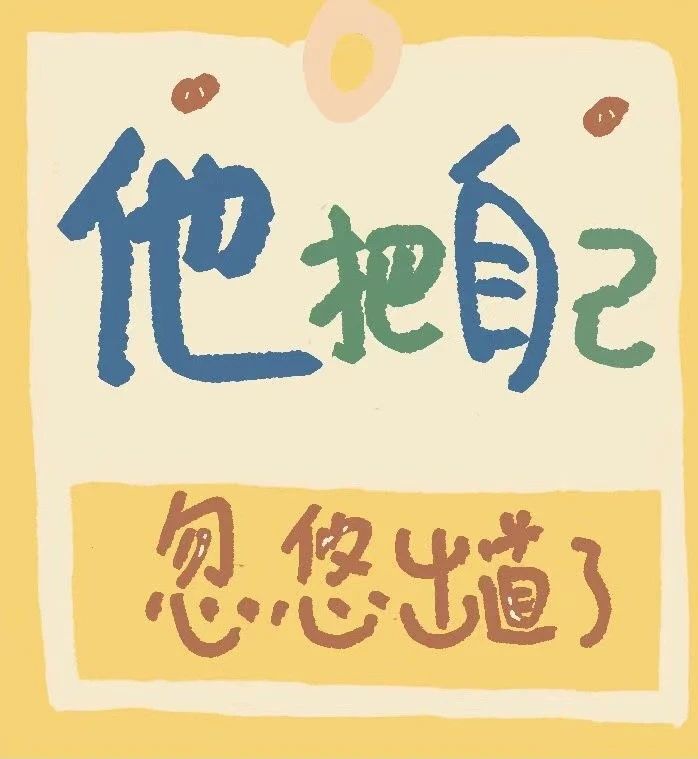 他把自己
忽悠出道了